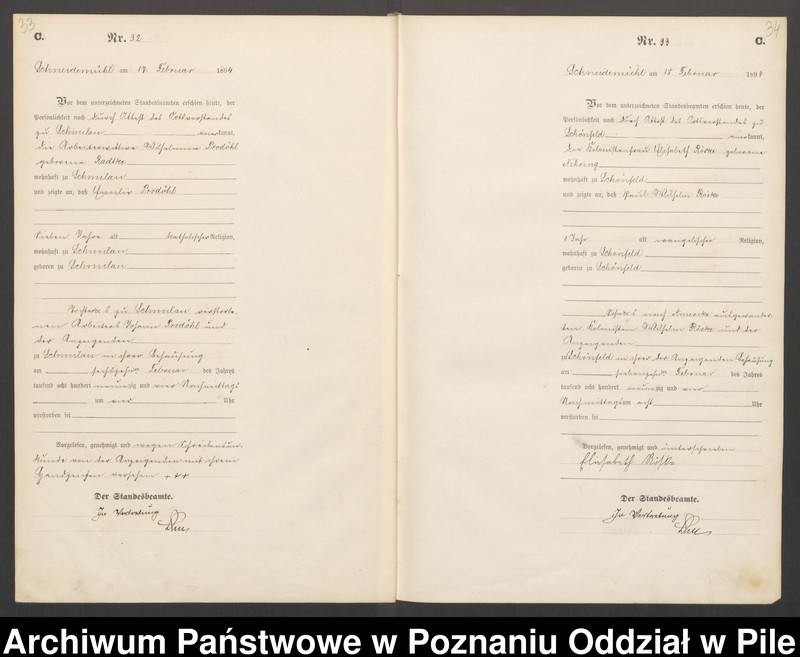 33
C.
Nr. 32
Schneidemühl am 17. Februar 1894
Vor dem unterzeichneten Standesbeamten erschien heute, der
Persönlichkeit nach durch Attest des Ortsvorstandes
zu Schmilau anerkannt,
die Arbeiterwittwe Wilhelmine Prodöhl
geborene Radtke
wohnhaft zu Schmilau
und zeigte an, daß Prodöhl
sieben Jahre alt katholischer Religion,
wohnhaft zu Schmilau
geboren zu Schmilau
Tochter des zu Schmilau verstorbe-
nen Arbeiters Johann Prodöhl und
der Anzeigenden
zu Schmilau in ihrer Behausung
am sechszehnten Februar des Jahres
tausend acht hundert neunzig und vier Nachmittags
um vier Uhr
verstorben sei
Vorgelesen, genehmigt und wegen Schreibensun-
kunde von der Anzeigenden mit ihrem
Handzeichen versehen + + +
Der Standesbeamte.
In Vertretung
34
Nr. 33
C.
Schneidemühl am 18. Februar 1894
Vor dem unterzeichneten Standesbeamten erschien heute, der
Persönlichkeit nach durch Attest des Ortsvorstandes zu
Schönfeld anerkannt,
die Kolonistenfrau Elisabeth Röske geborene
wohnhaft zu Schönfeld
und zeigte an, daß Paul Wilhelm Röske
1 Jahr alt evangelischer Religion,
wohnhaft zu Schönfeld
geboren zu Schönfeld
Sohn des nach Amerika ausgewander-
ten Kolonisten Wilhelm Röske und der
Anzeigenden
zu Schönfeld in ihrer der Anzeigenden Behausung
am siebenzehnten Februar des Jahres
tausend acht hundert neunzig und vier
Nachmittags um acht Uhr
verstorben sei
Vorgelesen, genehmigt und unterschrieben
Elisabeth Röske
Der Standesbeamte.
In Vertretung
Archiwum Państwowe w Poznaniu Oddział w Pile